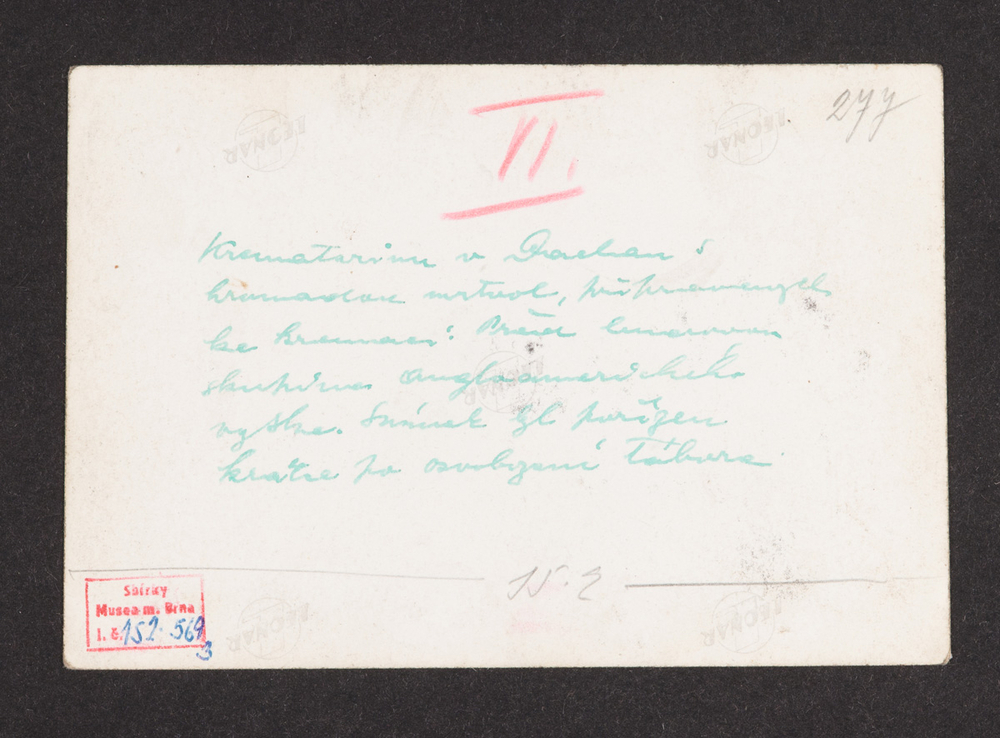 277
II.
Krematorium v Dachau s
hromadou mrtvol, připravených
ke kremaci. Před
skupina angloamerického
vojska. Snímek byl pořízen
krátce po osvobození tábora
15.2
Sbírky
Musea m. Brna
i. č. 152.569
3
LEONAR
LEONAR
LEONAR
LEONAR
LEONAR